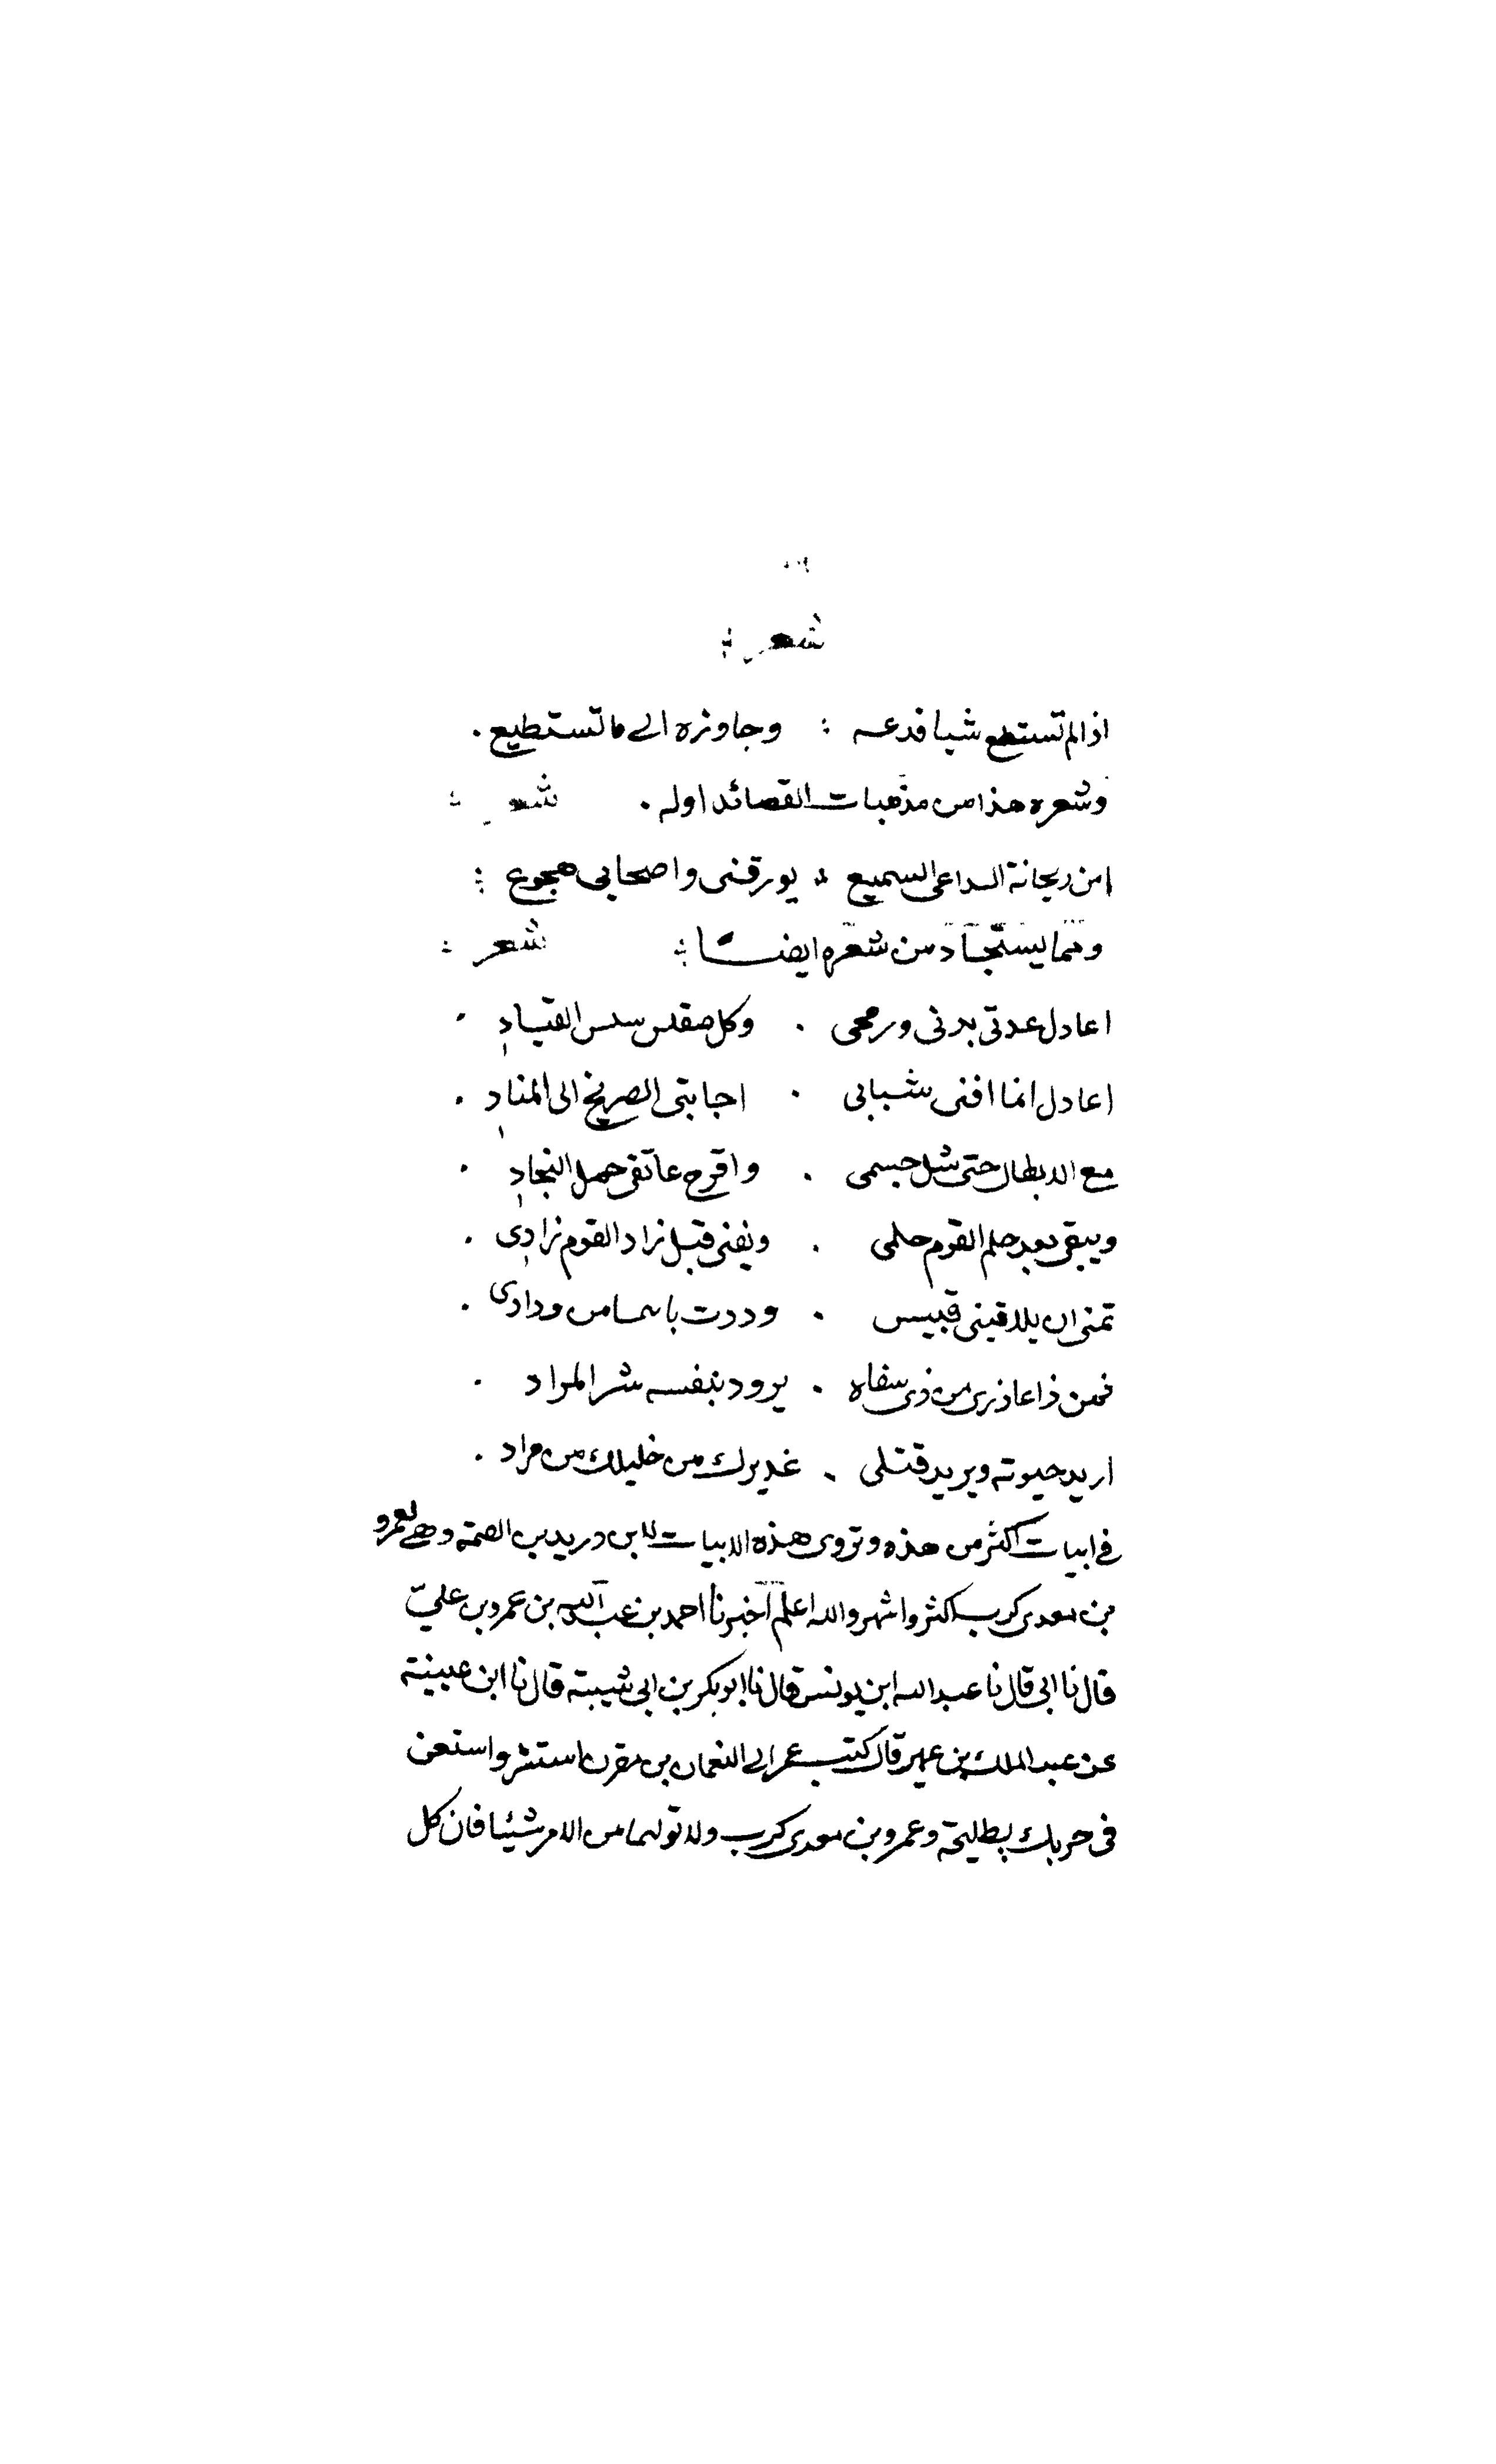 شعر ؛
اذا لم تستطع شيا فدعه ؛ وجاوزه الى ما تستطيع .
وشعره هذا من مذهبات القصائد اوله . شعر ؛
امن ريحانة الداعى السميع ؛ يورقنى واصحابى هجوع ؛
ومما يستجاد من شعره ايضا ؛ شعر ؛
اعادل عدتى بدنى ورمحى . وكل مقلص سلس القياد .
اعادل انما افنى شبابى . اجابتى الصريخ الى المناد .
مع الابطال حتى شل جسمى . واقرح عاتقى حمل النجاد .
ويبقى بعد حلم القوم حلمى . ويفنى قبل زاد القوم زادى .
تمنى ان يلاقينى قبيس . وددت باىما من ودادى .
فمن ذا عاذرى من ذى سفاه . يرود بنفسه شر المراد .
اريد حيوته ويريد قتلى . غديرك من خليلك من مراد .
فى ابيات اكثر من هذه وتروى هذه الابيات لابن دريد بن الصمة وهى لعمرو
بن معدى كرب اكثر واشهر والله اعلم اخبرنا احمد بن عبد الله بن عمرو بن علىّ
قال نا ابى قال نا عبد الله ابن يونس قال نا ابو بكر بن ابى شيبة قال نا ابن عيينة
عن عبد الملك بن عمير قال كتب عمر الى النعمان بن مقرن استشر واستعن
فى حربك بطليحة وعمرو بن معدى كرب ولا تولهما من الامر شيئا فان كل